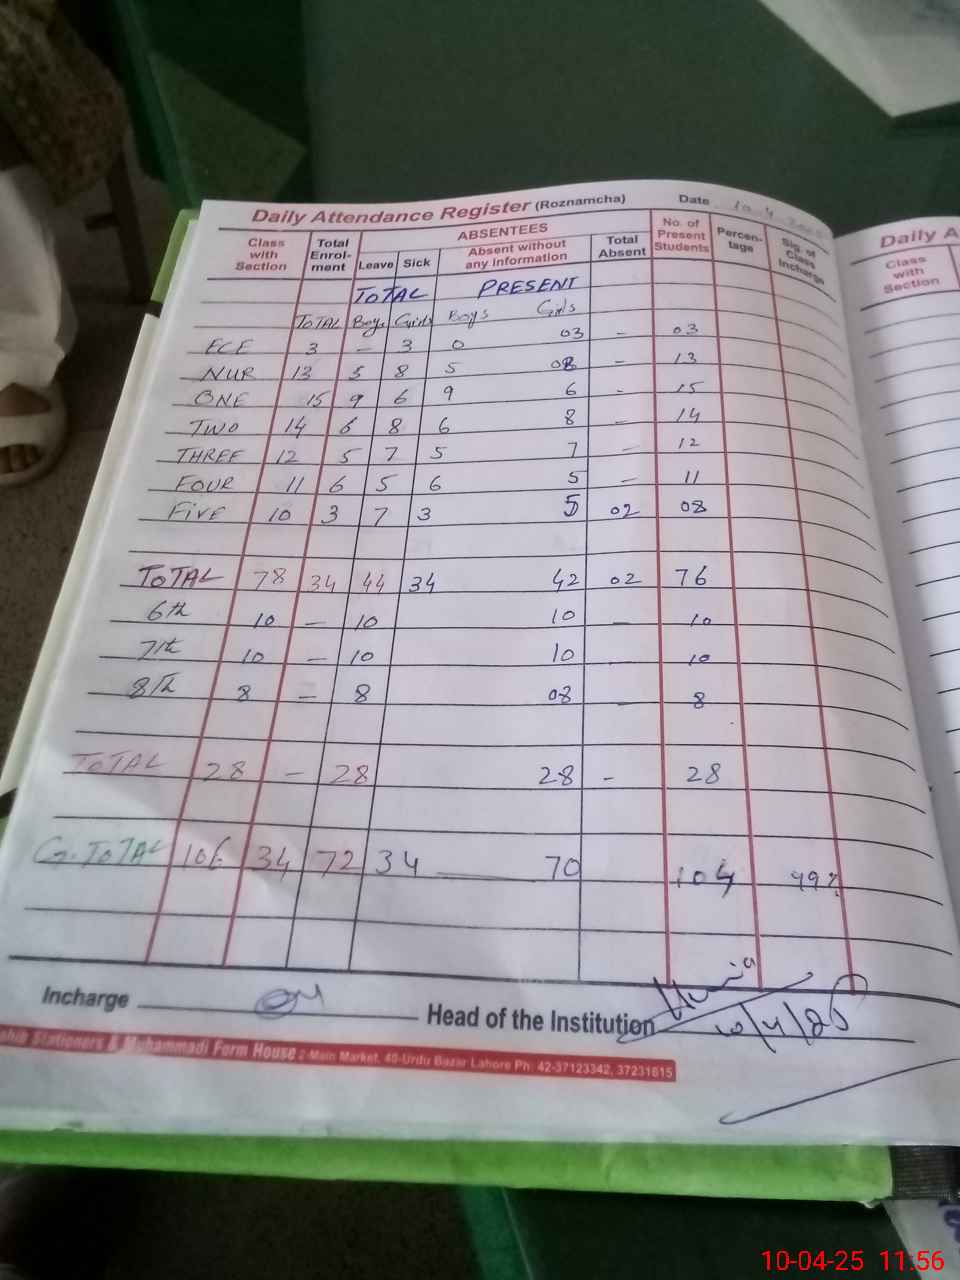 Daily Attendance Register (Roznamcha) Date 10.4.2025
Class with Section Total Enrol-ment ABSENTEES No. of Present Students Percen-tage Sig. of Class Incharge
Leave Sick Absent without any Information Total Absent
TOTAL PRESENT
TOTAL Boys Girls Boys Girls
ECE 3 – 3 0 03 – 03
NUR 13 5 8 5 08 – 13
ONE 15 9 6 9 6 – 15
TWO 14 6 8 6 8 – 14
THREE 12 5 7 5 7 – 12
FOUR 11 6 5 6 5 – 11
FIVE 10 3 7 3 5 02 08
TOTAL 78 34 44 34 42 02 76
6th 10 – 10 10 – 10
7th 10 – 10 10 – 10
8th 8 – 8 08 – 8
TOTAL 28 – 28 28 – 28
G.TOTAL 106 34 72 34 70 104 99%
Incharge Head of the Institution
10/4/25
ahib Stationers & Muhammadi Form House 2-Main Market, 40-Urdu Bazar Lahore Ph: 42-37123342, 37231615
Daily A
Class with Section
10-04-25 11:56